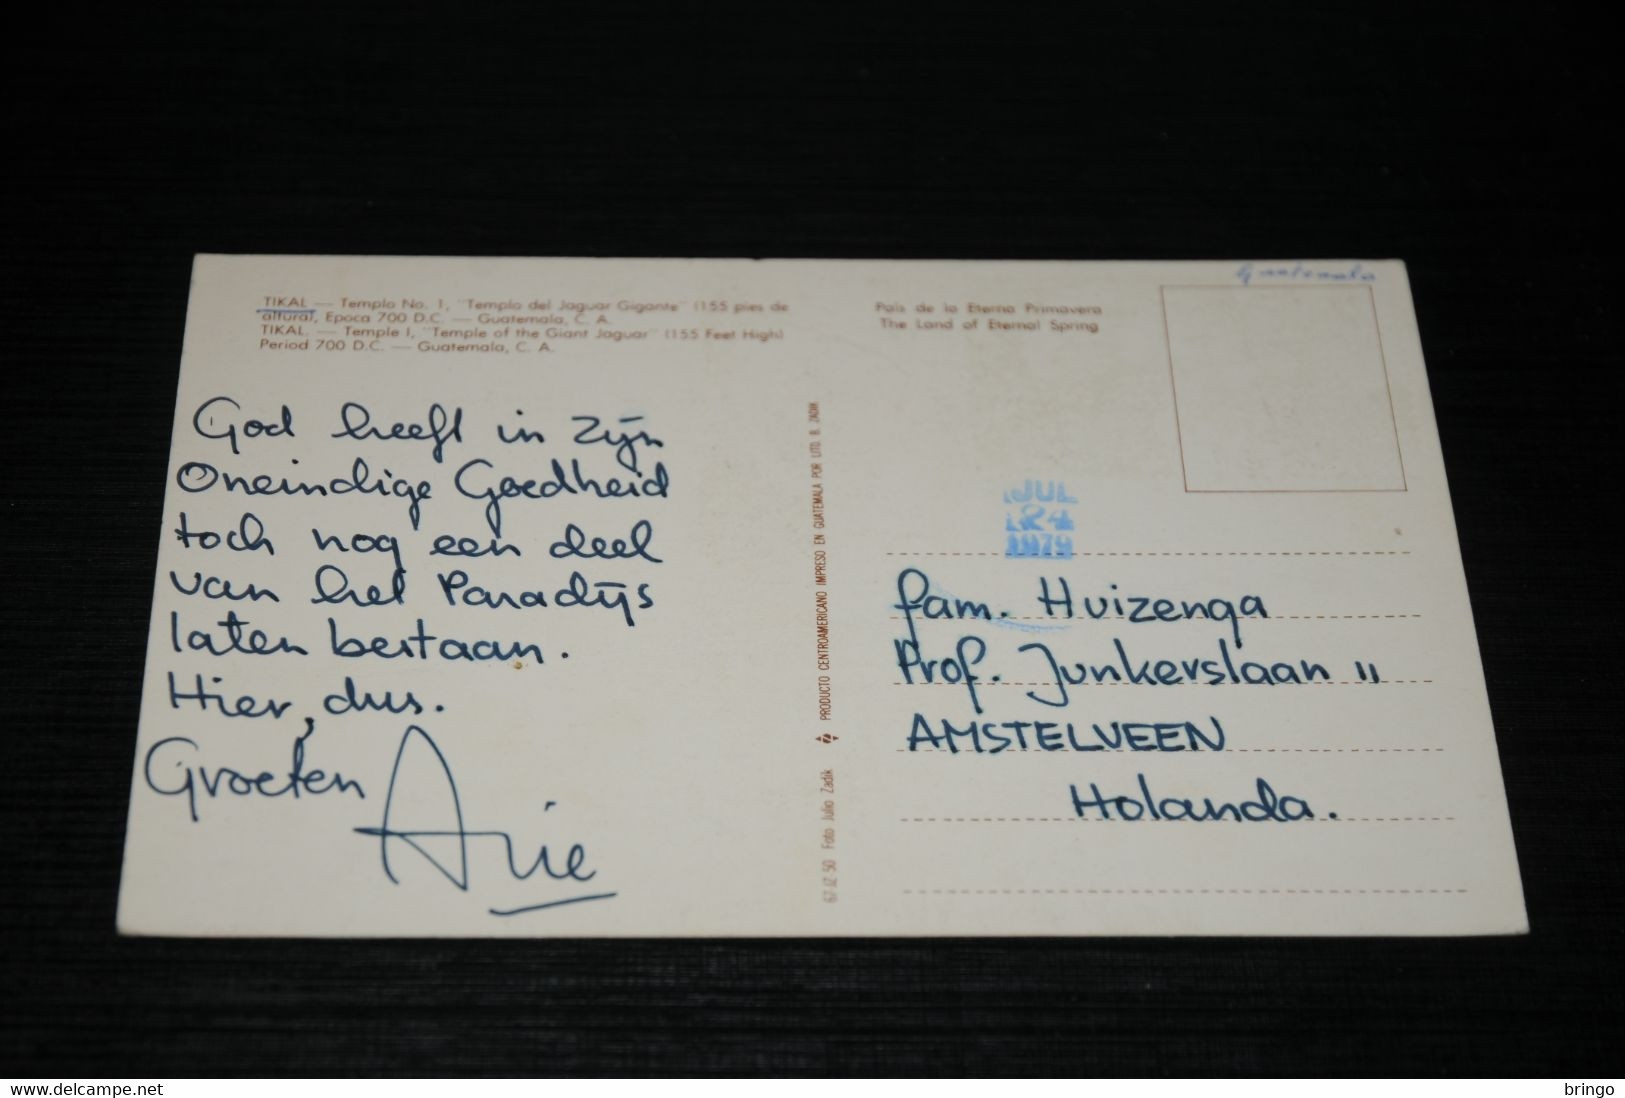 TIKAL — Templo No. 1, "Templo del Jaguar Gigante" (155 pies de
altura), Epoca 700 D.C. — Guatemala, C. A.
TIKAL. — Temple I, "Temple of the Giant Jaguar" (155 Feet High)
Period 700 D.C. — Guatemala, C. A.
God heeft in Zijn
Oneindige Goedheid
toch nog een deel
van het Paradijs
laten bestaan.
Hier, dus.
Groeten
Arie
PRODUCTO CENTROAMERICANO IMPRESO EN GUATEMALA POR LITO. B. ZADIK
67-12-50 Foto Julio Zadik
País de la Eterna Primavera
The Land of Eternal Spring
Guatemala
JUL
24
1979
fam. Huizenga
Prof. Junkerslaan 11
AMSTELVEEN
Holanda.
www.delcampe.net
bringo